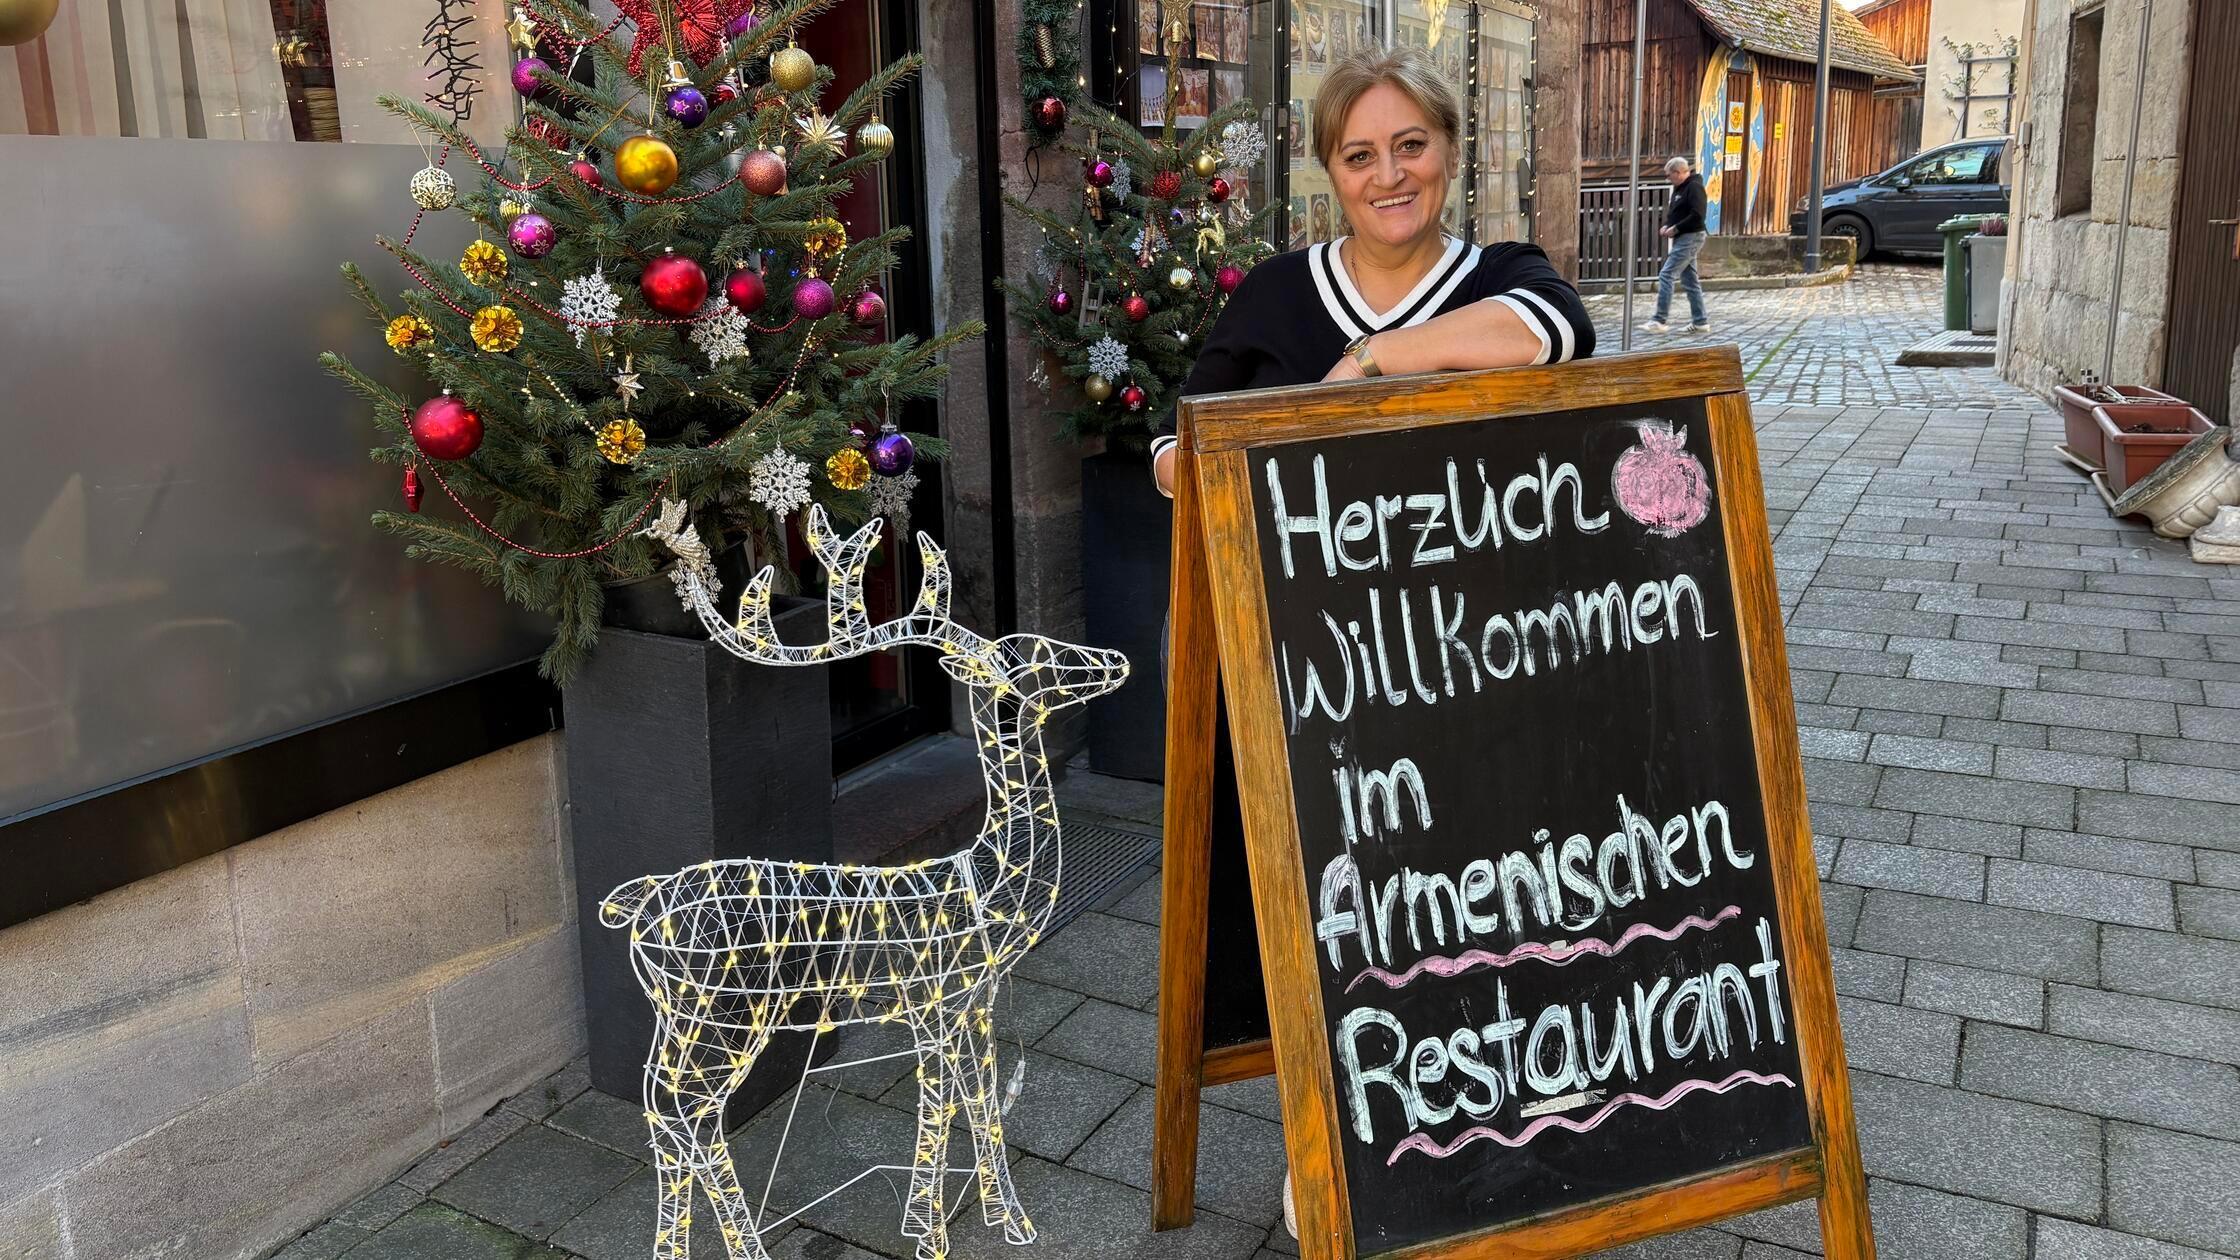 Herzlich
Willkommen
im
Armenischen
Restaurant